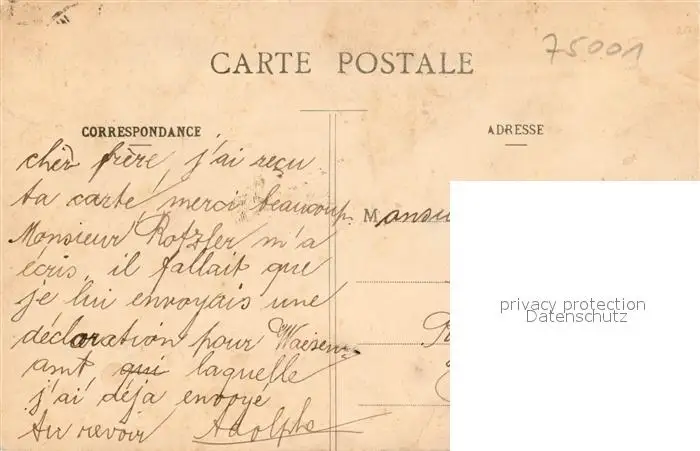 75001
CARTE POSTALE
CORRESPONDANCE
ADRESSE
cher frère, j'ai reçu
ta carte, merci beaucoup.
Monsieur Rotzler m'a
écris, il fallait que
je lui envoyais une
déclaration pour Waisen-
amt qui laquelle
j'ai déja envoyé
Au revoir Adolphe
Monsieur
privacy protection
Datenschutz